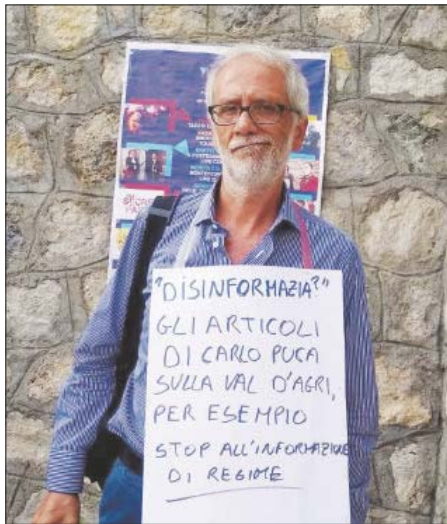 "DISINFORMAZIA?"
GLI ARTICOLI
DI CARLO PUCA
SULLA VAL D'AGRI,
PER ESEMPIO
STOP ALL'INFORMAZIONE
DI REGIME